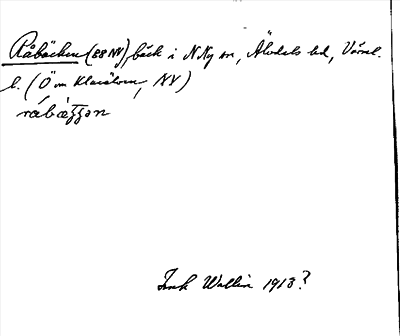 Råbäcken (88 NV) bäck i N Ny sn, Älvdals hd, Värml.
l. (Ö om Klarälven, NV)
råbäʒʒən
Wallin 1913?